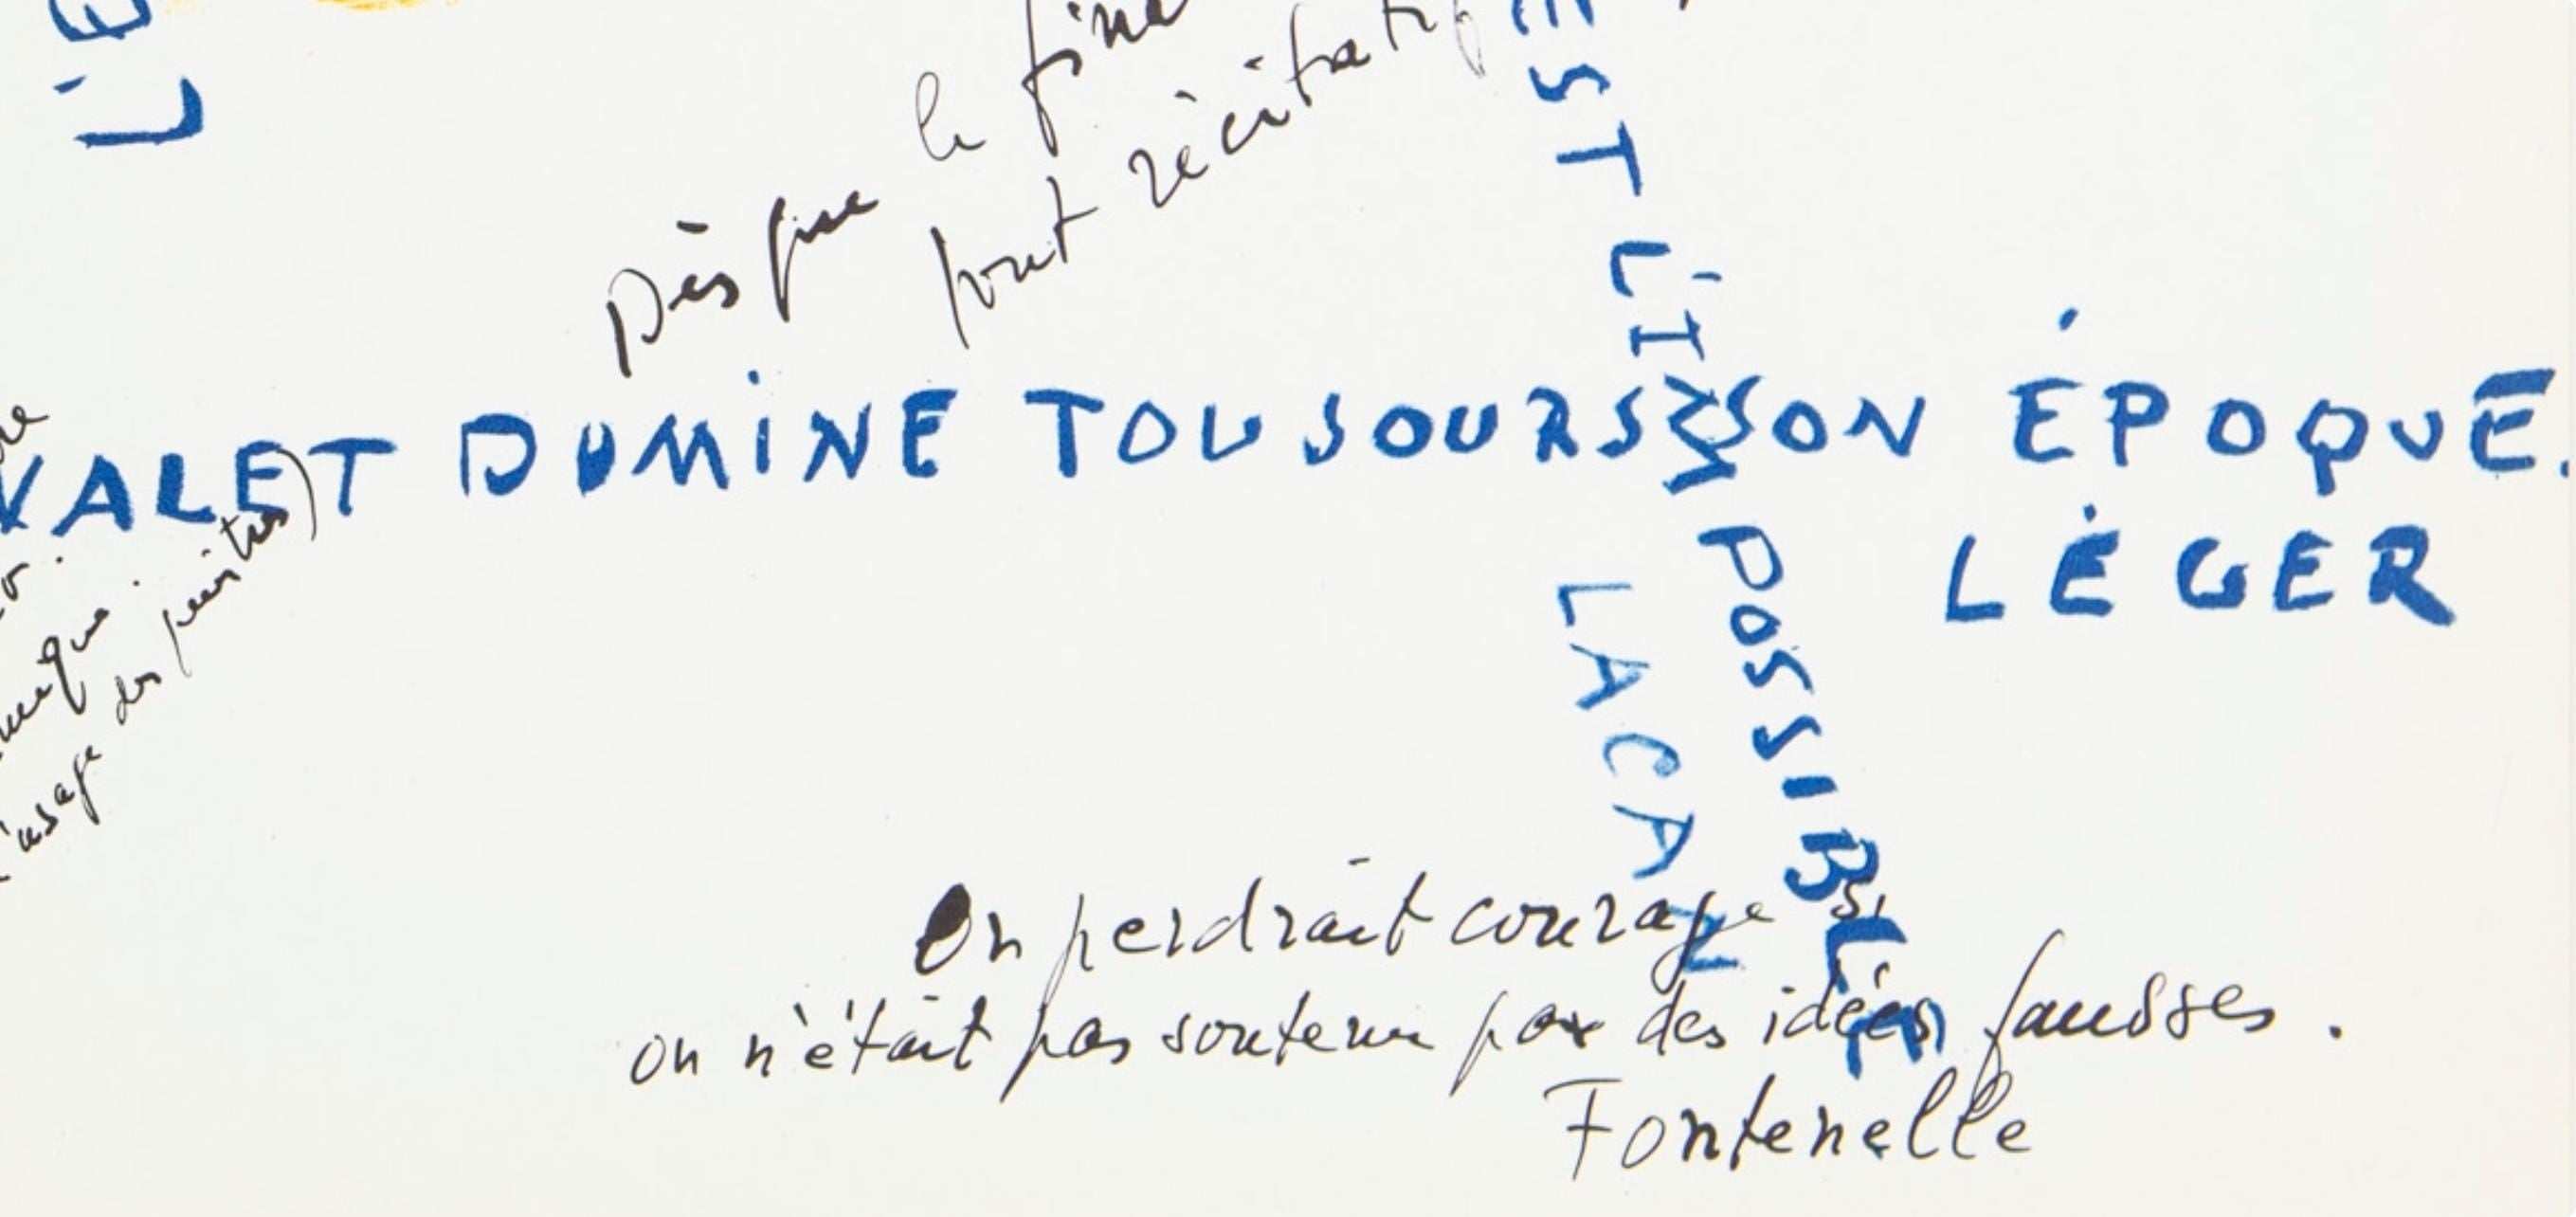 Dès que le
tout récitatif
EST L'IMPOSSIBLE
LACAN
VALET DOMINE TOUJOURS SON ÉPOQUE.
LÉGER
unique.
l'usage des peintres)
On perdrait courage si
on n'était pas soutenu par des idées fausses.
Fontenelle